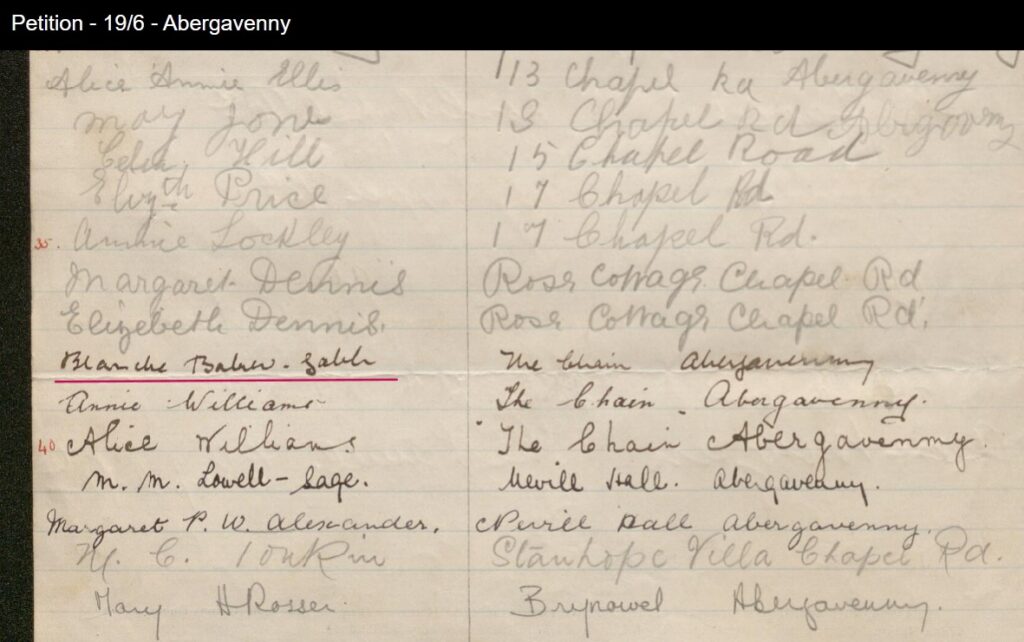 Petition - 19/6 - Abergavenny
Alice Annie Ellis 113 Chapel Rd Abergavenny
May Jones 13 Chapel Rd Abergavenny
Celia Hill 15 Chapel Road
Elizth Price 17 Chapel Rd
35. Annie Lockley 17 Chapel Rd.
Margaret Dennis Rose Cottage Chapel Rd
Elizebeth Dennis. Rose Cottage Chapel Rd.
Blanche The Chain Abergavenny
Annie Williams The Chain. Abergavenny.
40 Alice Williams The Chain Abergavenny.
M. M. Lowell-Sage. Nevill Hall. Abergavenny.
Margaret P. W. Alexander. Nevill Hall Abergavenny.
M. C. Tonkin Stanhope Villa Chapel Rd.
Mary H Rosser. Brynawel Abergavenny.